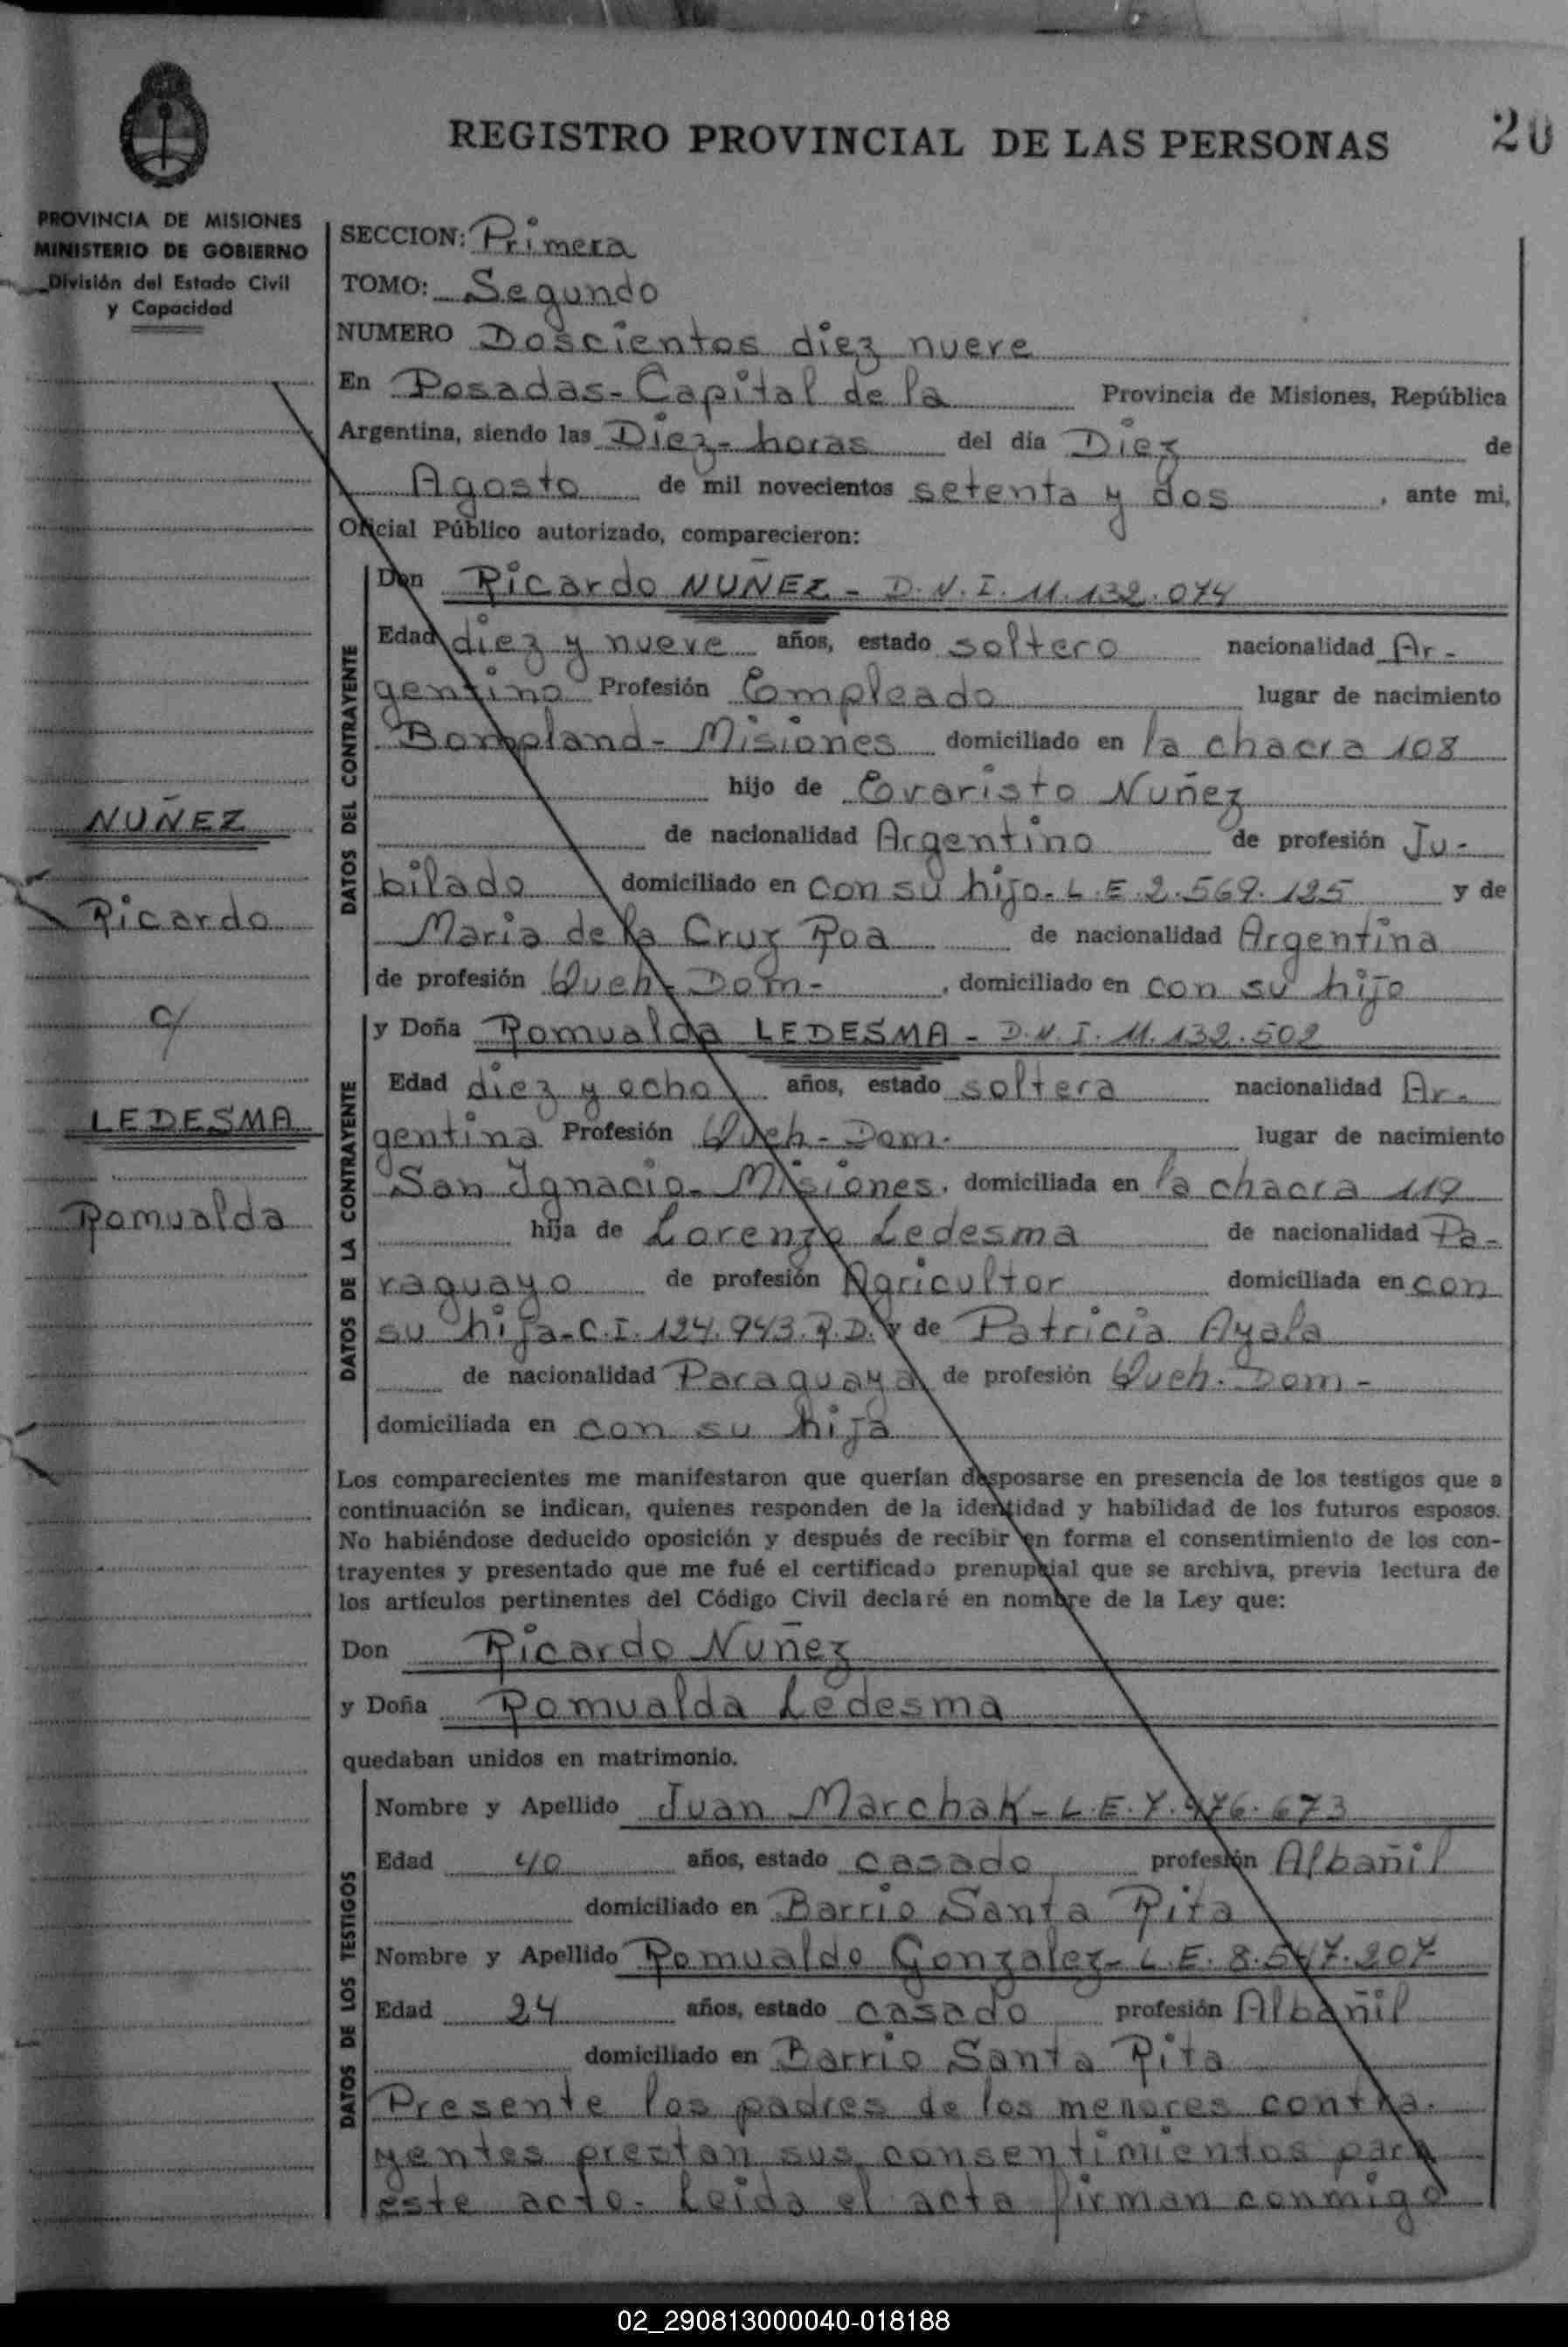 REGISTRO PROVINCIAL DE LAS PERSONAS
20
PROVINCIA DE MISIONES
MINISTERIO DE GOBIERNO
División del Estado Civil
y Capacidad
NUÑEZ
Ricardo
c/
LEDESMA
Romualda
SECCION: Primera
TOMO: Segundo
NUMERO Doscientos diez nueve
En Posadas-Capital de la Provincia de Misiones, República
Argentina, siendo las Diez-horas del día Diez de
Agosto de mil novecientos setenta y dos, ante mi,
Oficial Público autorizado, comparecieron:
DATOS DEL CONTRAYENTE
Don Ricardo NUÑEZ - D.N.I. 11.132.074
Edad diez y nueve años, estado soltero nacionalidad Ar-
gentino Profesión Empleado lugar de nacimiento
Bompland - Misiones domiciliado en la chacra 108
hijo de Evaristo Nuñez
de nacionalidad Argentino de profesión Ju-
bilado domiciliado en con su hijo- L.E. 2.569.125 y de
Maria de la Cruz Roa de nacionalidad Argentina
de profesión Queh- Dom-, domiciliado en con su hijo
DATOS DE LA CONTRAYENTE
y Doña Romualda LEDESMA - D.N.I. 11.132.502
Edad diez y ocho años, estado soltera nacionalidad Ar-
gentina Profesión Queh-Dom- lugar de nacimiento
San Ignacio- Misiones. domiciliada en la chacra 119
hija de Lorenzo Ledesma de nacionalidad Pa-
raguayo de profesión Agricultor domiciliada en con
su hija- C.I. 124.943.P.D. y de Patricia Ayala
de nacionalidad Paraguaya de profesión Queh. Dom-
domiciliada en con su hija
Los comparecientes me manifestaron que querían desposarse en presencia de los testigos que a
continuación se indican, quienes responden de la identidad y habilidad de los futuros esposos.
No habiéndose deducido oposición y después de recibir en forma el consentimiento de los con-
trayentes y presentado que me fué el certificado prenupcial que se archiva, previa lectura de
los artículos pertinentes del Código Civil declaré en nombre de la Ley que:
Don Ricardo Nuñez
y Doña Romualda Ledesma
quedaban unidos en matrimonio.
DATOS DE LOS TESTIGOS
Nombre y Apellido Juan Marchak- L.E. 7.476.673
Edad 40 años, estado casado profesión Albañil
domiciliado en Barrio Santa Rita
Nombre y Apellido Romualdo Gonzalez- L.E. 8.547.207
Edad 24 años, estado casado profesión Albañil
domiciliado en Barrio Santa Rita
Presente los padres de los menores contra-
yentes prestan sus consentimientos para
este acto- Leida el acta firman conmigo
02_290813000040-018188